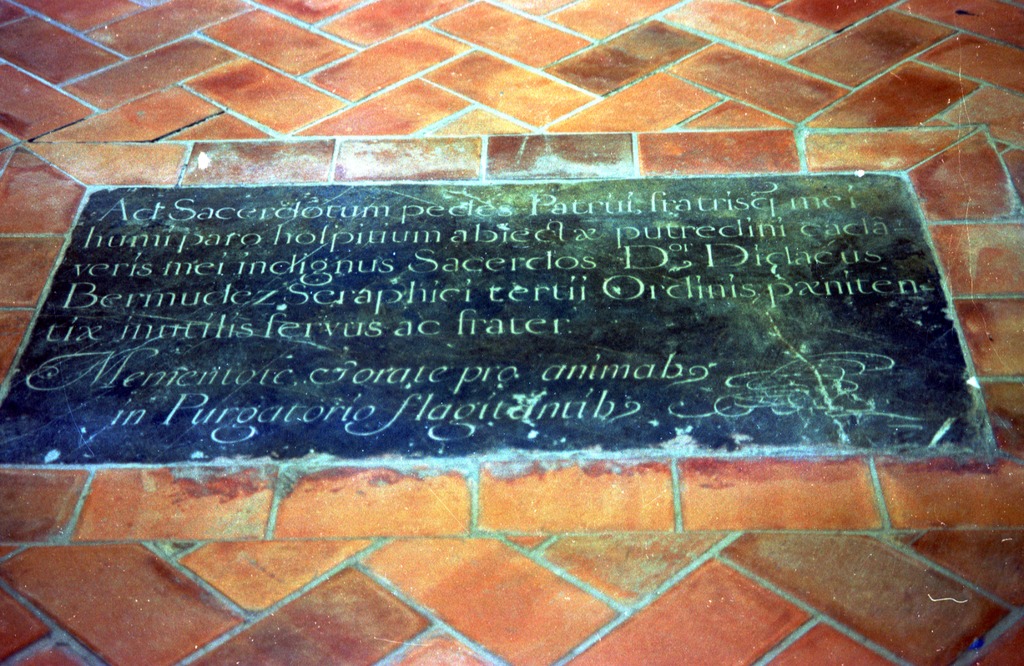 Ad Sacerdotum pedes Patrui, fratrisq mei
humi paro hospitium abiectæ putredini cadâ-
veris mei indignus Sacerdos D.or Didacus
Bermudez, Seraphici tertii Ordinis pæniten-
tiæ inutilis servus ac frater:
Mementote, & orate pro animab,
in Purgatorio flagitantib,